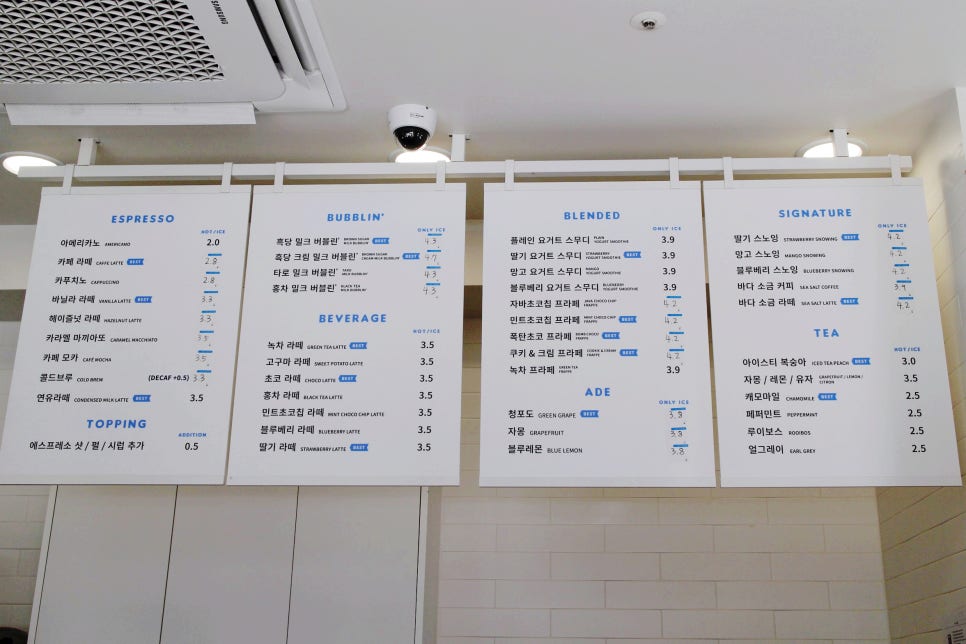 SAMSUNG
ESPRESSO
HOT/ICE
아메리카노 AMERICANO 2.0
카페 라떼 CAFFE LATTE BEST 2.8
카푸치노 CAPPUCCINO 2.8
바닐라 라떼 VANILLA LATTE BEST 3.3
헤이즐넛 라떼 HAZELNUT LATTE 3.3
카라멜 마끼아또 CARAMEL MACCHIATO 3.5
카페 모카 CAFÉ MOCHA 3.5
콜드브루 COLD BREW (DECAF +0.5) 3.3
연유라떼 CONDENSED MILK LATTE BEST 3.5
TOPPING
ADDITION
에스프레소 샷 / 펄 / 시럽 추가 0.5
BUBBLIN'
ONLY ICE
흑당 밀크 버블린' BROWN SUGAR MILK BUBBLIN' BEST 4.3
흑당 크림 밀크 버블린' BROWN SUGAR CREAM MILK BUBBLIN' BEST 4.7
타로 밀크 버블린' TARO MILK BUBBLIN' 4.3
홍차 밀크 버블린' BLACK TEA MILK BUBBLIN' 4.3
BEVERAGE
HOT/ICE
녹차 라떼 GREEN TEA LATTE BEST 3.5
고구마 라떼 SWEET POTATO LATTE 3.5
초코 라떼 CHOCO LATTE BEST 3.5
홍차 라떼 BLACK TEA LATTE 3.5
민트초코칩 라떼 MINT CHOCO CHIP LATTE 3.5
블루베리 라떼 BLUEBERRY LATTE 3.5
딸기 라떼 STRAWBERRY LATTE BEST 3.5
BLENDED
ONLY ICE
플레인 요거트 스무디 PLAIN YOGURT SMOOTHIE 3.9
딸기 요거트 스무디 STRAWBERRY YOGURT SMOOTHIE BEST 3.9
망고 요거트 스무디 MANGO YOGURT SMOOTHIE 3.9
블루베리 요거트 스무디 BLUEBERRY YOGURT SMOOTHIE 3.9
자바초코칩 프라페 JAVA CHOCO CHIP FRAPPE 4.2
민트초코칩 프라페 MINT CHOCO CHIP FRAPPE BEST 4.2
폭탄초코 프라페 BOMB CHOCO FRAPPE BEST 4.2
쿠키 & 크림 프라페 COOKIE & CREAM FRAPPE BEST 4.2
녹차 프라페 GREEN TEA FRAPPE 3.9
ADE
ONLY ICE
청포도 GREEN GRAPE BEST 3.8
자몽 GRAPEFRUIT 3.8
블루레몬 BLUE LEMON 3.8
SIGNATURE
ONLY ICE
딸기 스노잉 STRAWBERRY SNOWING BEST 4.2
망고 스노잉 MANGO SNOWING 4.2
블루베리 스노잉 BLUEBERRY SNOWING 4.2
바다 소금 커피 SEA SALT COFFEE 3.9
바다 소금 라떼 SEA SALT LATTE BEST 4.2
TEA
HOT/ICE
아이스티 복숭아 ICED TEA PEACH BEST 3.0
자몽 / 레몬 / 유자 GRAPEFRUIT / LEMON / CITRON 3.5
캐모마일 CHAMOMILE BEST 2.5
페퍼민트 PEPPERMINT 2.5
루이보스 ROOIBOS 2.5
얼그레이 EARL GREY 2.5